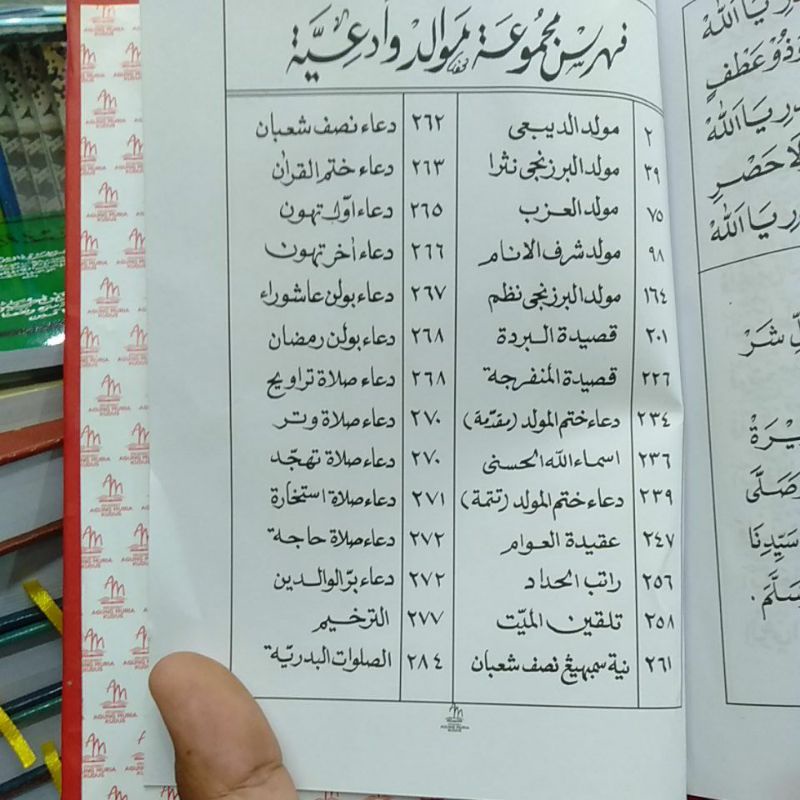 فهرس مجموعة موالد وأدعيّة
٢ مولد الديبعى
٣٩ مولد البرزنجى نثرا
٧٥ مولد العزب
٩٨ مولد شرف الانام
١٦٤ مولد البرزنجى نظم
٢٠١ قصيدة البردة
٢٢٦ قصيدة المنفرجة
٢٣٤ دعاء ختم المولد (مقدّمة)
٢٣٦ اسماء الله الحسنى
٢٣٩ دعاء ختم المولد (تتمة)
٢٤٧ عقيدة العوام
٢٥٦ راتب الحداد
٢٥٨ تلقين الميّت
٢٦١ نية سمبهيڠ نصف شعبان
٢٦٢ دعاء نصف شعبان
٢٦٣ دعاء ختم القرأن
٢٦٥ دعاء اوّل تهون
٢٦٦ دعاء اخر تهون
٢٦٧ دعاء بولن عاشوراء
٢٦٨ دعاء بولن رمضان
٢٦٨ دعاء صلاة تراويح
٢٧٠ دعاء صلاة وتر
٢٧٠ دعاء صلاة تهجّد
٢٧١ دعاء صلاة استخارة
٢٧٢ دعاء صلاة حاجة
٢٧٢ دعاء برّ الوالدين
٢٧٧ الترخيم
٢٨٤ الصلوات البدريّة
AGUNG MURIA
KUDUS
يَا اَللهْ
ذُوْ عَطْفٍ
دِرِ يَا اَللهْ
حَصْرِ
دِرِ يَا اَللهْ
شَرْ
يْرَةْ
وَصَلَّى
سَيِّدِنَا
سَلَّمَ.